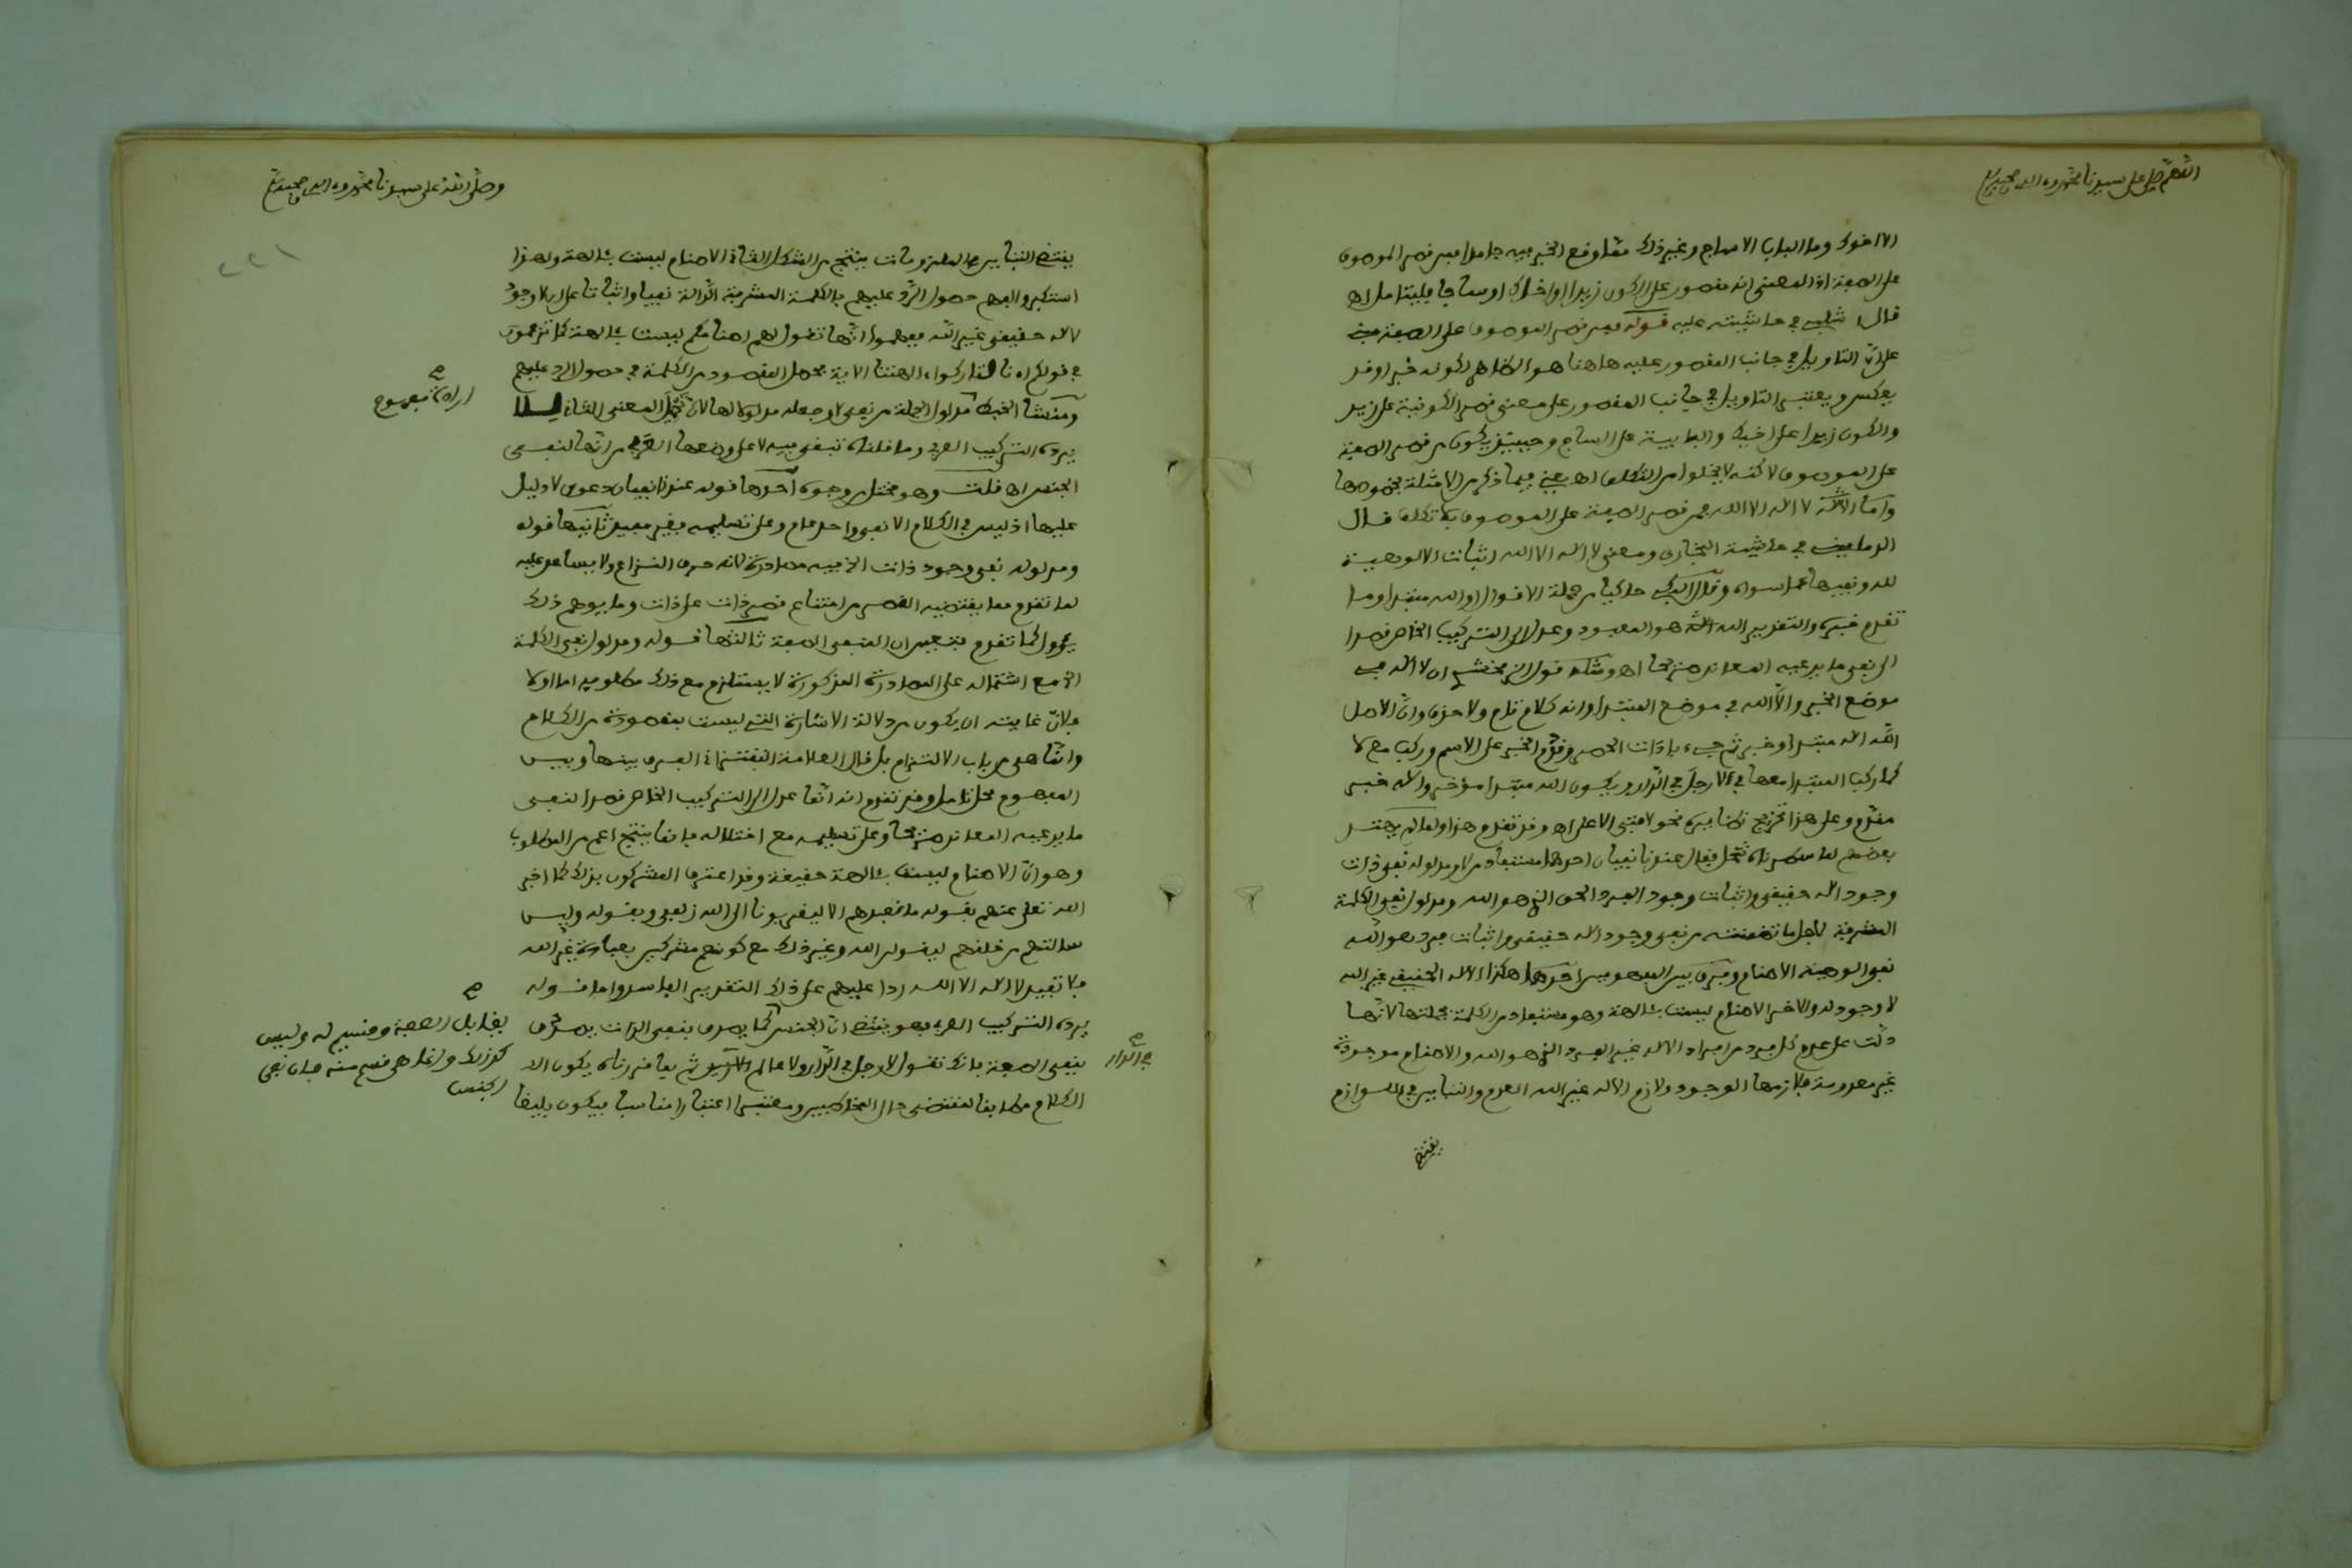 اللهم صل على سيدنا محمد وءاله وصحبه وسلم
الا اخوك وما الباب الا ساج وغير ذلك مما وقع الخبر فيه جامدا من قصر الموصوف
على الصفة اذ المعنى انه مقصور على الكون زيدا او اخاك او ساجا فليتامل اه
قال في حاشيته عليه قوله من قصر الموصوف على الصفة
على ان التاويل في جانب المقصور عليه هاهنا هو الظاهر لكونه خبرا وقد
يعكس ويعتبر التاويل في جانب المقصور على معنى قصر الكونية على زيد
والكون زيدا على اخيك والبابية على الساج وحينئذ يكون من قصر الصفة
على الموصوف لاكنه لا يخلوا من التكلف اه يعني فيما ذكر من الامثلة بخصوصها
واما لا اله الا الله فمن قصر الصفة على الموصوف بلا تكلف قال
الدماميني في حاشية البخاري ومعنى لا اله الا الله اثبات الالوهية
لله ونفيها عما سواه وقال حاكيا من جملة الاقوال او الله مبتدا وما
تقدم خبره والتقدير الله هو المعبود وعدل الى التركيب الخاص قصدا
الى نفي ما يدعيه المعاند صريحا اه ومثله قول الزمخشري ان لا اله في
موضع الخبر والا الله في موضع المبتدا وانه كلام تام ولا حذف وان الاصل
الله اله مبتدا وخبر ثم جيء باداة الحصر وقدم الخبر على الاسم وركب مع لا
كما ركب المبتدا معها في لا رجل في الدار ويكون الله مبتدا مؤخر والاله خبر
مقدم وعلى هذا تخرج نظائره نحو لا فتى الا علي اه وقد تقدم هذا
بعضهم فقال عندنا نفيان احدهما مستفاد من لا ومدلوله نفي ذات
وجود اله حقيقي واثبات وجود الفرد الحق الذي هو الله ومدلول نفي الكلمة
المشرفة لاجل ما تضمنته من نفي وجود اله حقيقي واثبات فرد هو الله
نفي الوهية الاصنام وفرق بين النفيين احدهما هكذا الاله الحقيقي غير الله
لا وجود له والاخر الاصنام ليست بئالهة وهو مستفاد من الكلمة بجملتها لانها
دلت على عدم كل فرد من افراد الاله غير الفرد الذي هو الله والاصنام موجودة
غير معدومة فلازمها الوجود ولازم الاله غير الله العدم والتباين في اللوازم
يقتضي
وصلى الله على سيدنا محمد وءاله وصحبه وسلم
٢٢١
يقتضي التباين في الملزومات ينتج من الشكل الثاني الاصنام ليست بئالهة ولهذا
استكبروا لفهم حصول الرد عليهم بالكلمة المشرفة الدالة نفيا واثباتا على ان لا وجود
لاله حقيقي غير الله ففهموا انها تقول لهم اصنامكم ليست بئالهة كما تزعمون
في قولكم اءنا لتاركوا ءالهتنا الاية فحصل المقصود من الكلمة في حصول الرد عليهم
ومنشا الخبط مدلول الجملة من نفي لا وجعله مدلولا لها لان المعنى الثاني
اراده بمفهوم
يرده التركيب العربي وما قلناه تبقى فيه لا على وضعها العربي من انها لنفي
الجنس اه قلت وهو مختل من وجوه احدها قوله عندنا نفيان دعوى لا دليل
عليها اذ ليس في الكلام الا نفي واحد عام وعلى تسليمه فغير مفيد ثانيها قوله
ومدلوله نفي وجود ذات الخ فيه مصادرة لانه حرف النزاع ولا يساعد عليه
لما تقدم مما يقتضيه القصر من امتناع قصر ذات على ذات وما يوهم ذلك
يئول كما تقدم فتعين ان المنفي الصفة ثالثها قوله ومدلول نفي الكلمة
الخ مع اشتماله على المصادرة المذكورة لا يستلزم مع ذلك مطلوبه اما اولا
فلان غايته ان يكون من دلالة الاشارة التي ليست مقصودة من الكلام
وانما هي من باب الالتزام بل قال العلامة التفتازاني الفرق بينها وبين
المفهوم محل تامل وقد تقدم انه انما عدل الى التركيب الخاص قصدا لنفي
ما يدعيه المعاند صريحا وعلى تسليمه مع اختلاله فانما ينتج اعم من المطلوب
وهو ان الاصنام ليست بئالهة حقيقة وقد اعترف المشركون بذلك كما اخبر
الله تعلى عنهم بقوله ما نعبدهم الا ليقربونا الى الله زلفى وبقوله ولئن
سالتهم من خلقهم ليقولن الله وغير ذلك مع كونهم مشركين بعبادة غير الله
فلا تفيد لا اله الا الله ردا عليهم على ذلك التقدير الفاسد واما قوله
يرده التركيب العربي فهو يقتضي ان الجنس كما يصدق بنفي الذات يصدق
بنفي الصفة فانك تقول لا رجل في الدار ولا عالم ثم بما قررناه يكون
الكلام مطابقا لمقتضى حال المخاطبين ومعتبرا اعتبارا مناسبا فيكون بليغا
في الدار
يقابل الصفة وقسيم له وليس
كذلك وانما هي قسم منه فان نفي
الجنس